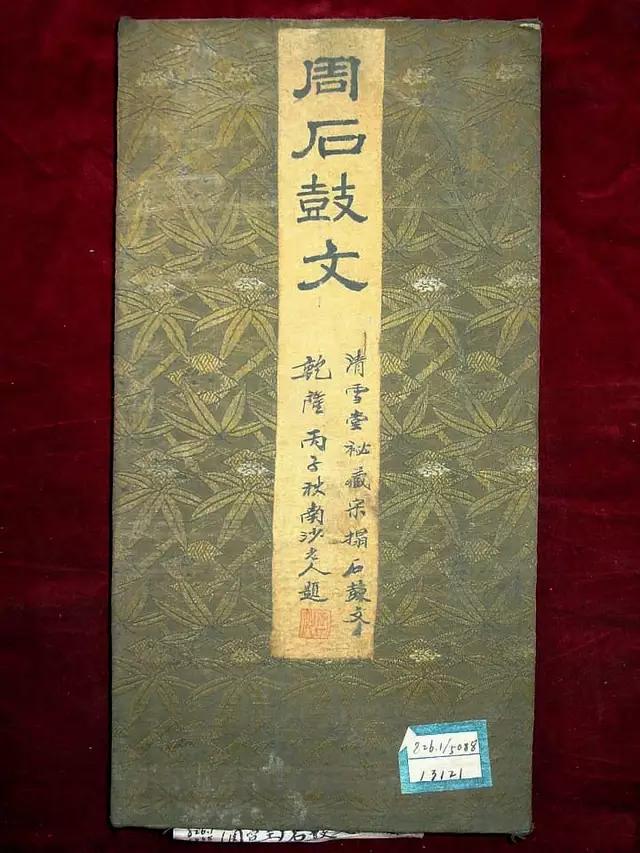 周石鼓文
清雪堂祕藏宋搨石鼓文
乾隆丙子秋南沙老人題
826.1/5088
13121